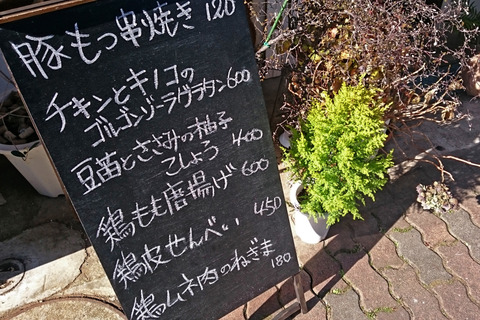 豚もっ串焼き 120
チキンとキノコの
ゴルゴンゾーラグラタン 600
豆苗とささみの柚子
こしょう 400
鶏もも唐揚げ 600
鶏皮せんべい 450
鶏ムネ肉のねぎま 180